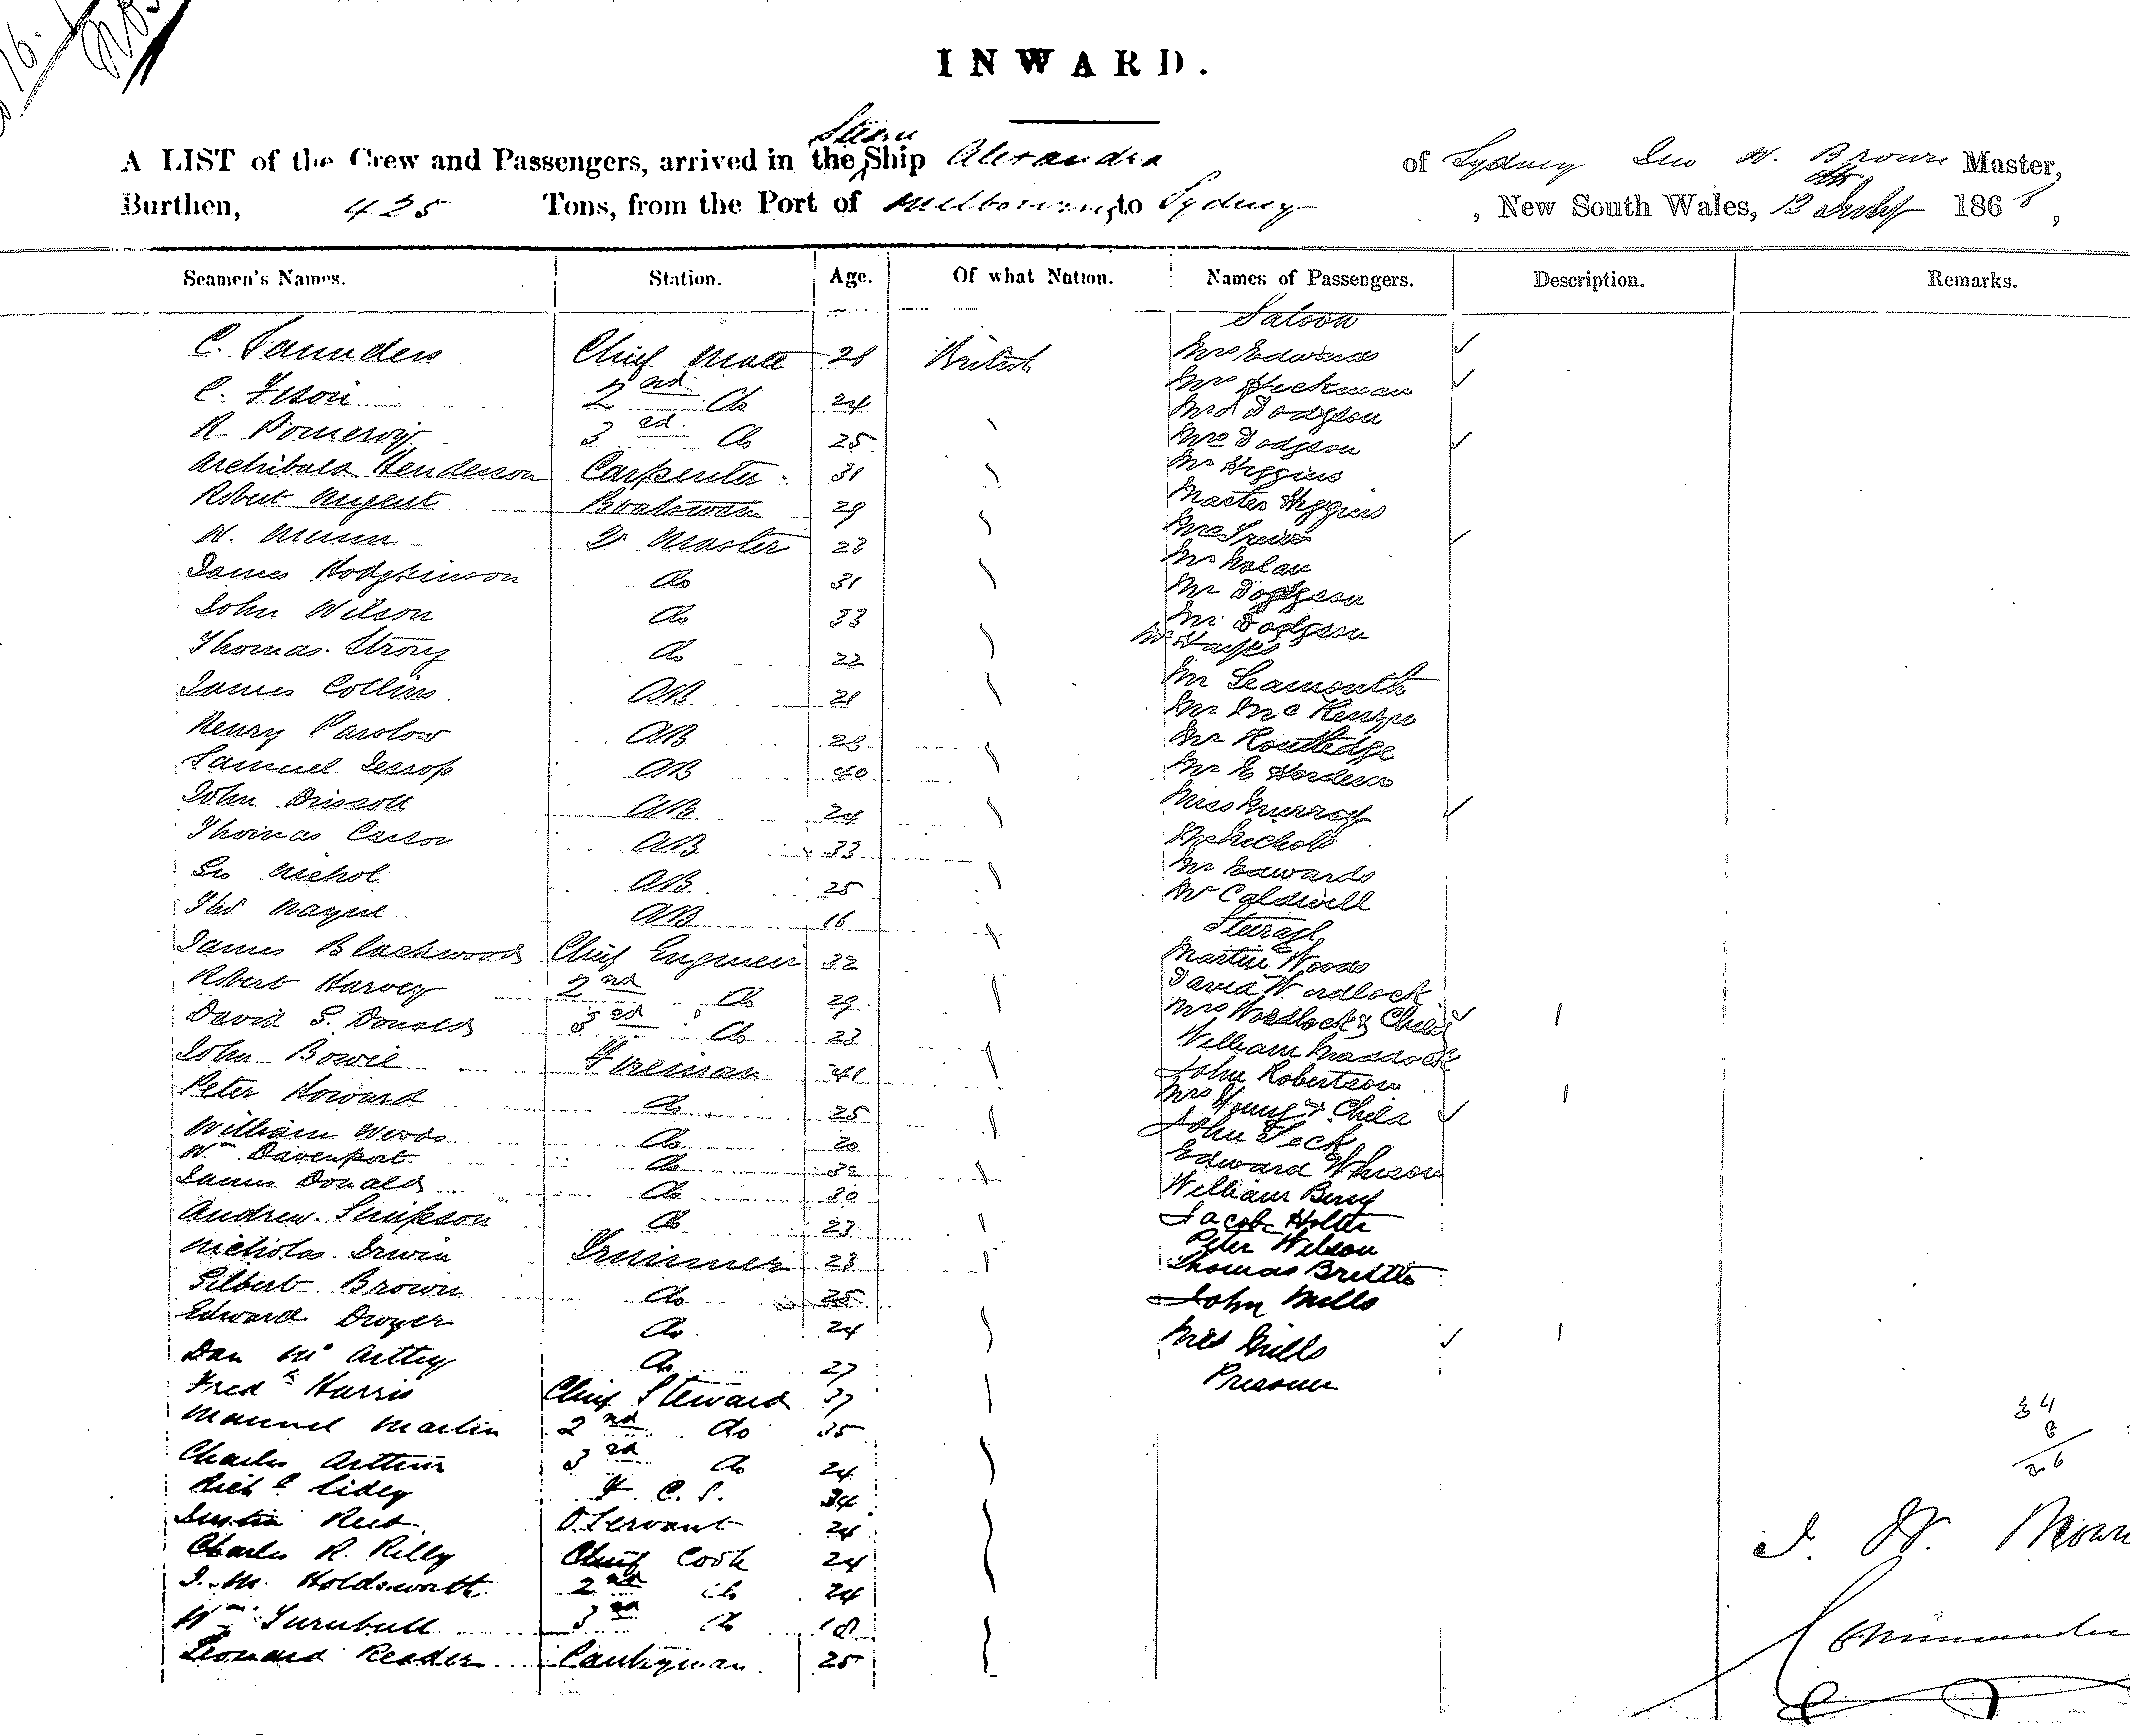 INWARD.
Steam
A LIST of the Crew and Passengers, arrived in the Ship Alexandra of Sydney Geo W. Brown Master,
Burthen, 425 Tons, from the Port of Melbourne, to Sydney, New South Wales, 13th July 1868,
Seamen's Names. Station. Age. Of what Nation. Names of Passengers. Description. Remarks.
Saloon
C. Saunders Chief Mate 28 British Mrs Edwards
C. Ison 2nd Do 24 Mrs Hickman
R. Pomeroy 3rd Do 25 Mrs Dodgson
Mrs Dodgson
Archibald Henderson Carpenter 31 Mr Higgins
Robert Nugent Boatswain 29 Master Higgins
W. 2r Master 23 Mrs
James Hodgkinson Do 31 Mr Nolan
Mr Dodgson
John Wilson Do 33 Mr Dodgson
Thomas Strong Do 22 Mr Hayes
James Collins AB 21 Mr Learmonth
Henry Parslow AB 28 Mr McKenzie
Mr Routledge
Samuel Jessop AB 40 Mr E Hordern
John Driscoll AB 24 Miss Murray
Thomas Carson AB 33 Mr Nichols
Geo Nichol AB 25 Mr Edwards
Thos Nayne AB 16 Mr Caldwell
Steerage
James Blackwood Chief Engineer 32 Martin Woods
Robert Harvey 2nd Do 29 David Wordlock
David S. Donald 3rd Do 23 Mrs Wordlock & Child 1
John Bowie Fireman 41 William Maddock
John Robertson
Peter Howard Do 25 Mrs Young & Child 1
William Woods Do 20 John Peck
Wm Davenport Do 32 Edward
James Donald Do 30 William Berry
Andrew Simpson Do 23 Jacob Holtte
Peter Wilson
Nicholas Irwin Trimmer 23 Thomas Brittle
Gilbert Brown Do 25 John Mills
Edward Dwyer Do 24
Dan McArthy Do 27 Mrs Mills 1
Fredk Harris Chief Steward 37 Prisoner
Manuel Martin 2nd Do 35
Charles Arthur 3rd Do 24
Richd Sidey F. C. S. 34
Reed Servant 24
Charles R. Rilly Chief Cook 24
J. M. Holdsworth 2nd Do 24
Wm Turnbull 3rd Do 18
Leonard Reader Pantryman 25
34
8
26
G. W. Brown
Commander